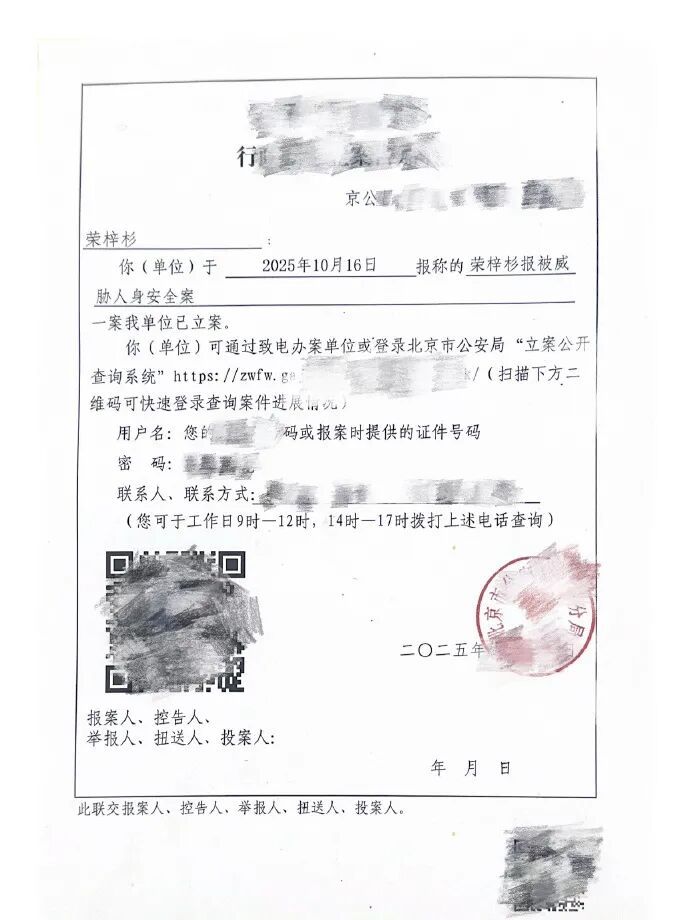 行
京公
荣梓杉：
你（单位）于 2025年10月16日 报称的 荣梓杉报被威
胁人身安全案
一案我单位已立案。
你（单位）可通过致电办案单位或登录北京市公安局“立案公开
查询系统”https://zwfw.ga /（扫描下方二
维码可快速登录查询案件进展情况）
用户名：您的 码或报案时提供的证件号码
密 码：
联系人、联系方式：
（您可于工作日9时—12时，14时—17时拨打上述电话查询）
北京市公 分局
二〇二五年 日
报案人、控告人、
举报人、扭送人、投案人：
年 月 日
此联交报案人、控告人、举报人、扭送人、投案人。